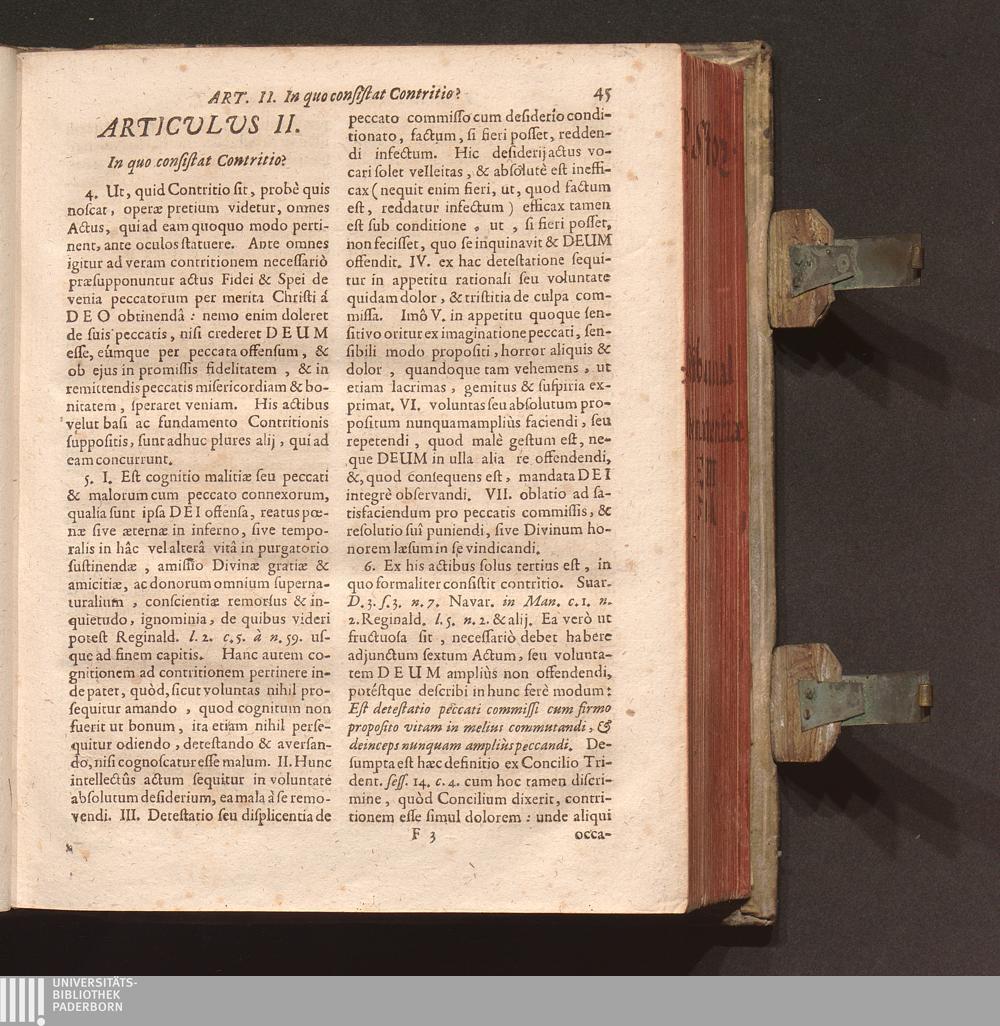 ART. II. In quo consistat Contritio?
45
ARTICULUS II.
In quo consistat Contritio?
4. Ut, quid Contritio sit, probè quis
noscat, operæ pretium videtur, omnes
Actus, qui ad eam quoquo modo perti-
nent, ante oculos statuere. Ante omnes
igitur ad veram contritionem necessariò
præsupponuntur actus Fidei & Spei de
venia peccatorum per merita Christi á
DEO obtinendâ: nemo enim doleret
de suis peccatis, nisi crederet DEUM
esse, eúmque per peccata offensum, &
ob ejus in promissis fidelitatem, & in
remittendis peccatis misericordiam & bo-
nitatem, speraret veniam. His actibus
velut basi ac fundamento Contritionis
suppositis, sunt adhuc plures alij, qui ad
eam concurrunt.
5. I. Est cognitio malitiæ seu peccati
& malorum cum peccato connexorum,
qualia sunt ipsa DEI offensa, reatus pœ-
næ sive æternæ in inferno, sive tempo-
ralis in hâc vel alterâ vitâ in purgatorio
sustinendæ, amissio Divinæ gratiæ &
amicitiæ, ac donorum omnium superna-
turalium, conscientiæ remorsus & in-
quietudo, ignominia, de quibus videri
potest Reginald. l. 2. c. 5. à n. 59. us-
que ad finem capitis. Hanc autem co-
gnitionem ad contritionem pertinere in-
de patet, quòd, sicut voluntas nihil pro-
sequitur amando, quod cognitum non
fuerit ut bonum, ita etiam nihil perse-
quitur odiendo, detestando & aversan-
do, nisi cognoscatur esse malum. II. Hunc
intellectûs actum sequitur in voluntate
absolutum desiderium, ea mala à se remo-
vendi. III. Detestatio seu displicentia de
peccato commisso cum desiderio condi-
tionato, factum, si fieri posset, redden-
di infectum. Hic desiderij actus vo-
cari solet velleitas, & absolutè est ineffi-
cax (nequit enim fieri, ut, quod factum
est, reddatur infectum) efficax tamen
est sub conditione, ut, si fieri posset,
non fecisset, quo se inquinavit & DEUM
offendit. IV. ex hac detestatione sequi-
tur in appetitu rationali seu voluntate
quidam dolor, & tristitia de culpa com-
missa. Imô V. in appetitu quoque sen-
sitivo oritur ex imaginatione peccati, sen-
sibili modo propositi, horror aliquis &
dolor, quandoque tam vehemens, ut
etiam lacrimas, gemitus & suspiria ex-
primat. VI. voluntas seu absolutum pro-
positum nunquam ampliùs faciendi, seu
repetendi, quod malè gestum est, ne-
que DEUM in ulla alia re offendendi,
&, quod consequens est, mandata DEI
integrè observandi. VII. oblatio ad sa-
tisfaciendum pro peccatis commissis, &
resolutio suî puniendi, sive Divinum ho-
norem læsum in se vindicandi.
6. Ex his actibus solus tertius est, in
quo formaliter consistit contritio. Suar.
D. 3. s. 3. n. 7. Navar. in Man. c. 1. n.
2. Reginald. l. 5. n. 2. & alij. Ea verò ut
fructuosa sit, necessariò debet habere
adjunctum sextum Actum, seu volunta-
tem DEUM ampliùs non offendendi,
potéstque describi in hunc ferè modum:
Est detestatio peccati commissi cum firmo
proposito vitam in melius commutandi, &
deinceps nunquam ampliùs peccandi. De-
sumpta est hæc definitio ex Concilio Tri-
dent. sess. 14. c. 4. cum hoc tamen discri-
mine, quòd Concilium dixerit, contri-
tionem esse simul dolorem: unde aliqui
F 3
occa-
UNIVERSITÄTS-
BIBLIOTHEK
PADERBORN